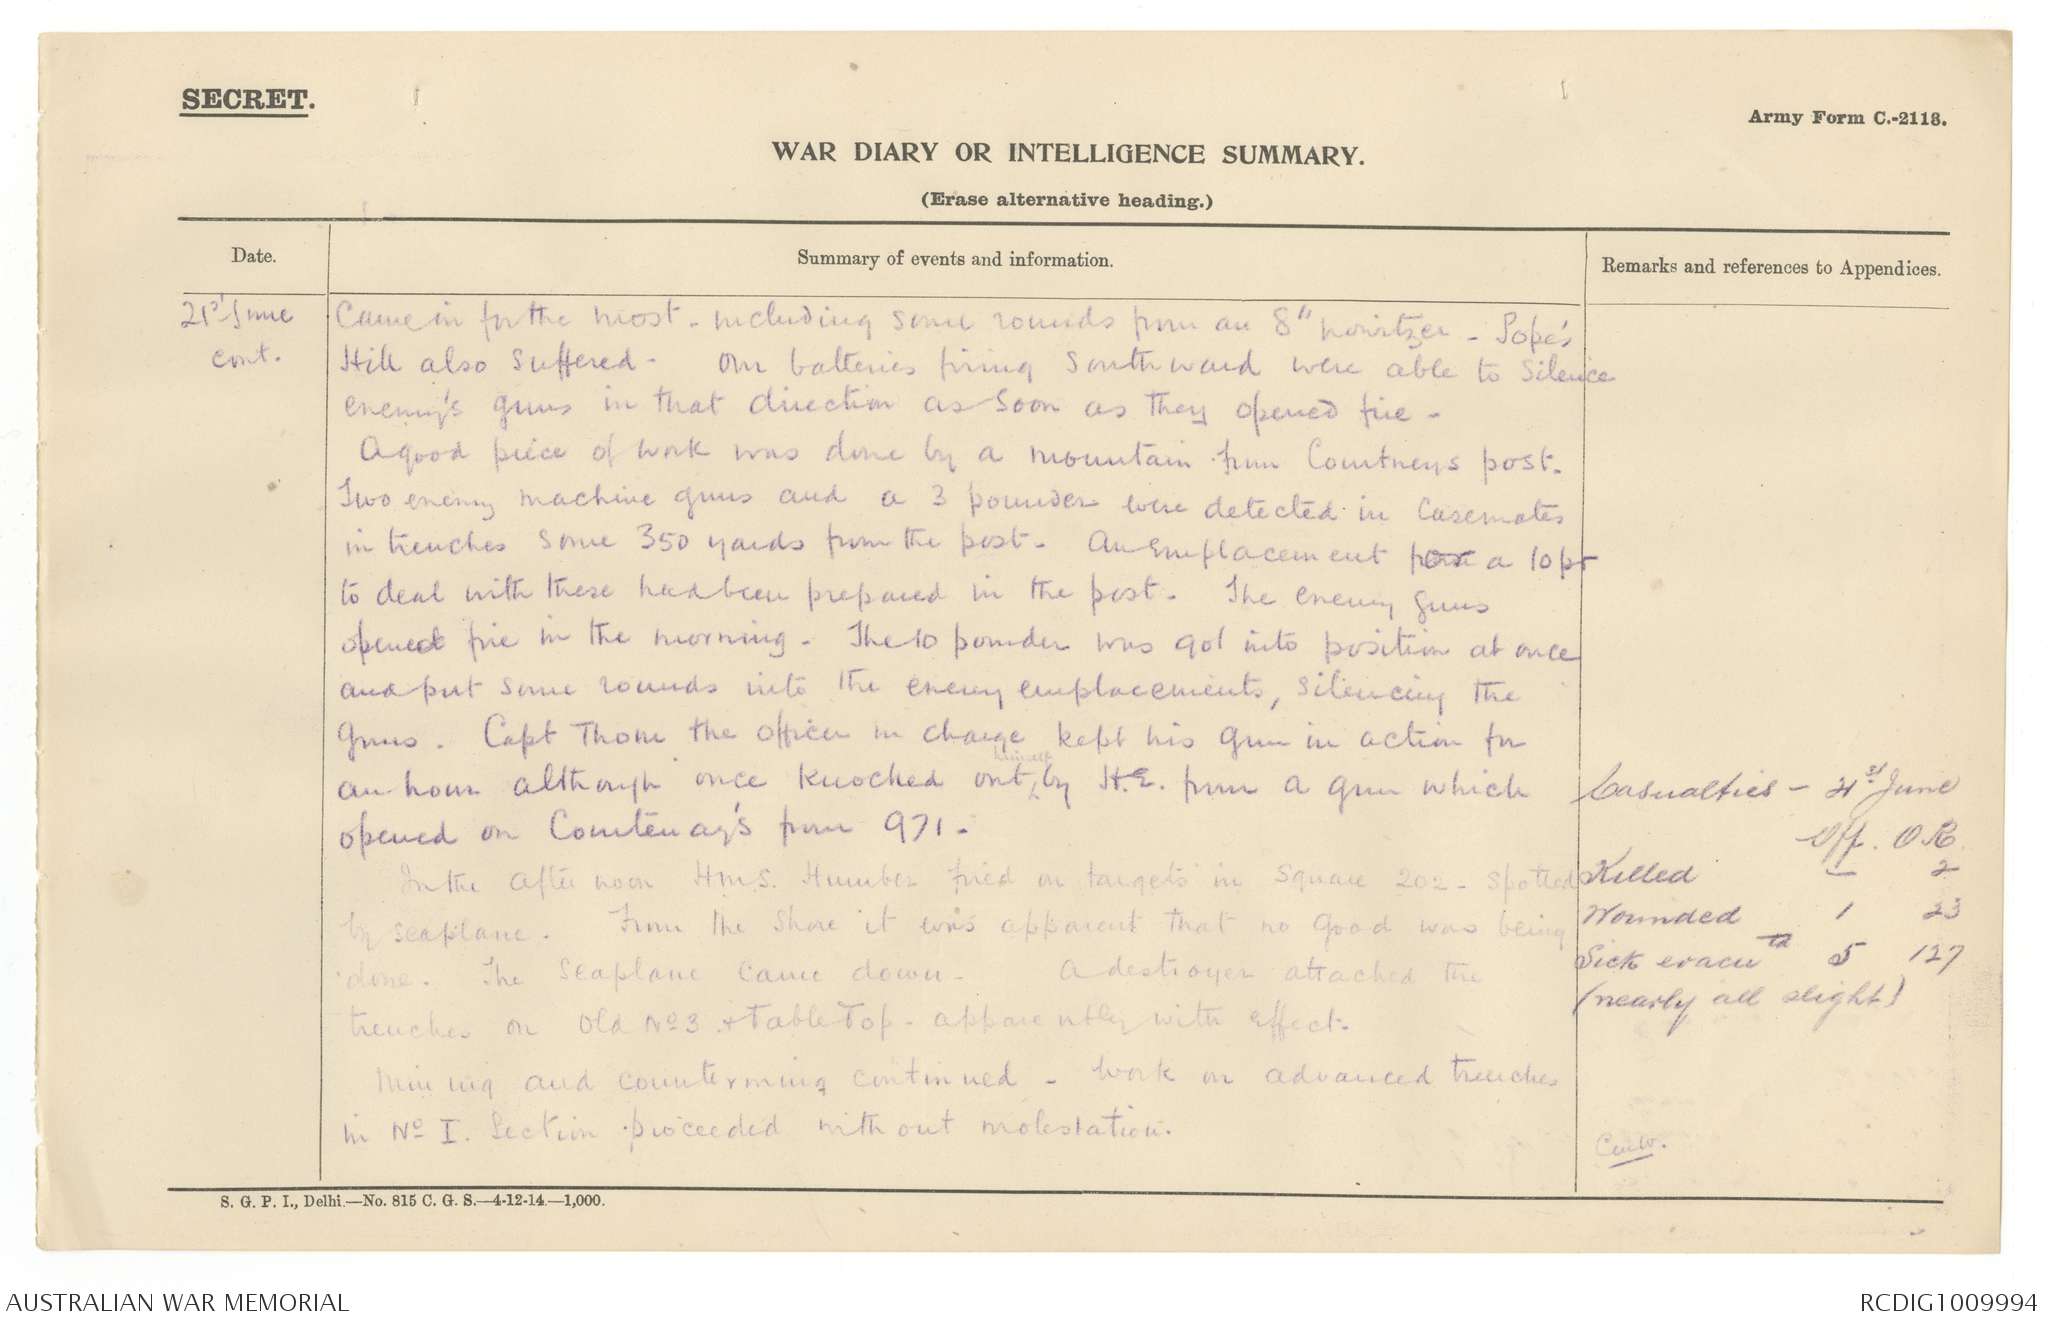 SECRET.
Army Form C.-2118.
WAR DIARY OR INTELLIGENCE SUMMARY.
(Erase alternative heading.)
Date.
Summary of events and information.
Remarks and references to Appendices.
21st June
cont.
Came in for the most - including some rounds from an 8" howitzer - Pope's
Hill also suffered - Our batteries firing Southward were able to Silence
enemy's guns in that direction as soon as they opened fire -
A good piece of work was done by a mountain gun Courtneys post.
Two enemy machine guns and a 3 pounder were detected in Casemates
in trenches some 350 yards from the post - An Emplacement for a 10 pr
to deal with these had been prepared in the post - The enemy guns
opened fire in the morning - The 10 pounder was got into position at once
and put some rounds into the enemy emplacements, silencing the
guns. Capt Thom the officer in charge kept his gun in action for
an hour although once knocked out, himself by H.E. from a gun which
opened on Courtenay's from 971.
In the afternoon H.M.S. Humber fired on targets in square 202 - spotted
by seaplane. From the shore it was apparent that no good was being
done. The Seaplane came down - A destroyer attached the
trenches on Old No 3 & Table Top - apparently with effect.
Mining and countermining continued - Work on advanced trenches
in No I. Section proceeded without molestation.
Casualties - 21st June
Off. O.R.
Killed - 2
Wounded 1 23
Sick evacuted 5 127
(nearly all slight)
S. G. P. I., Delhi.—No. 815 C. G. S.—4-12-14.—1,000.
AUSTRALIAN WAR MEMORIAL
RCDIG1009994